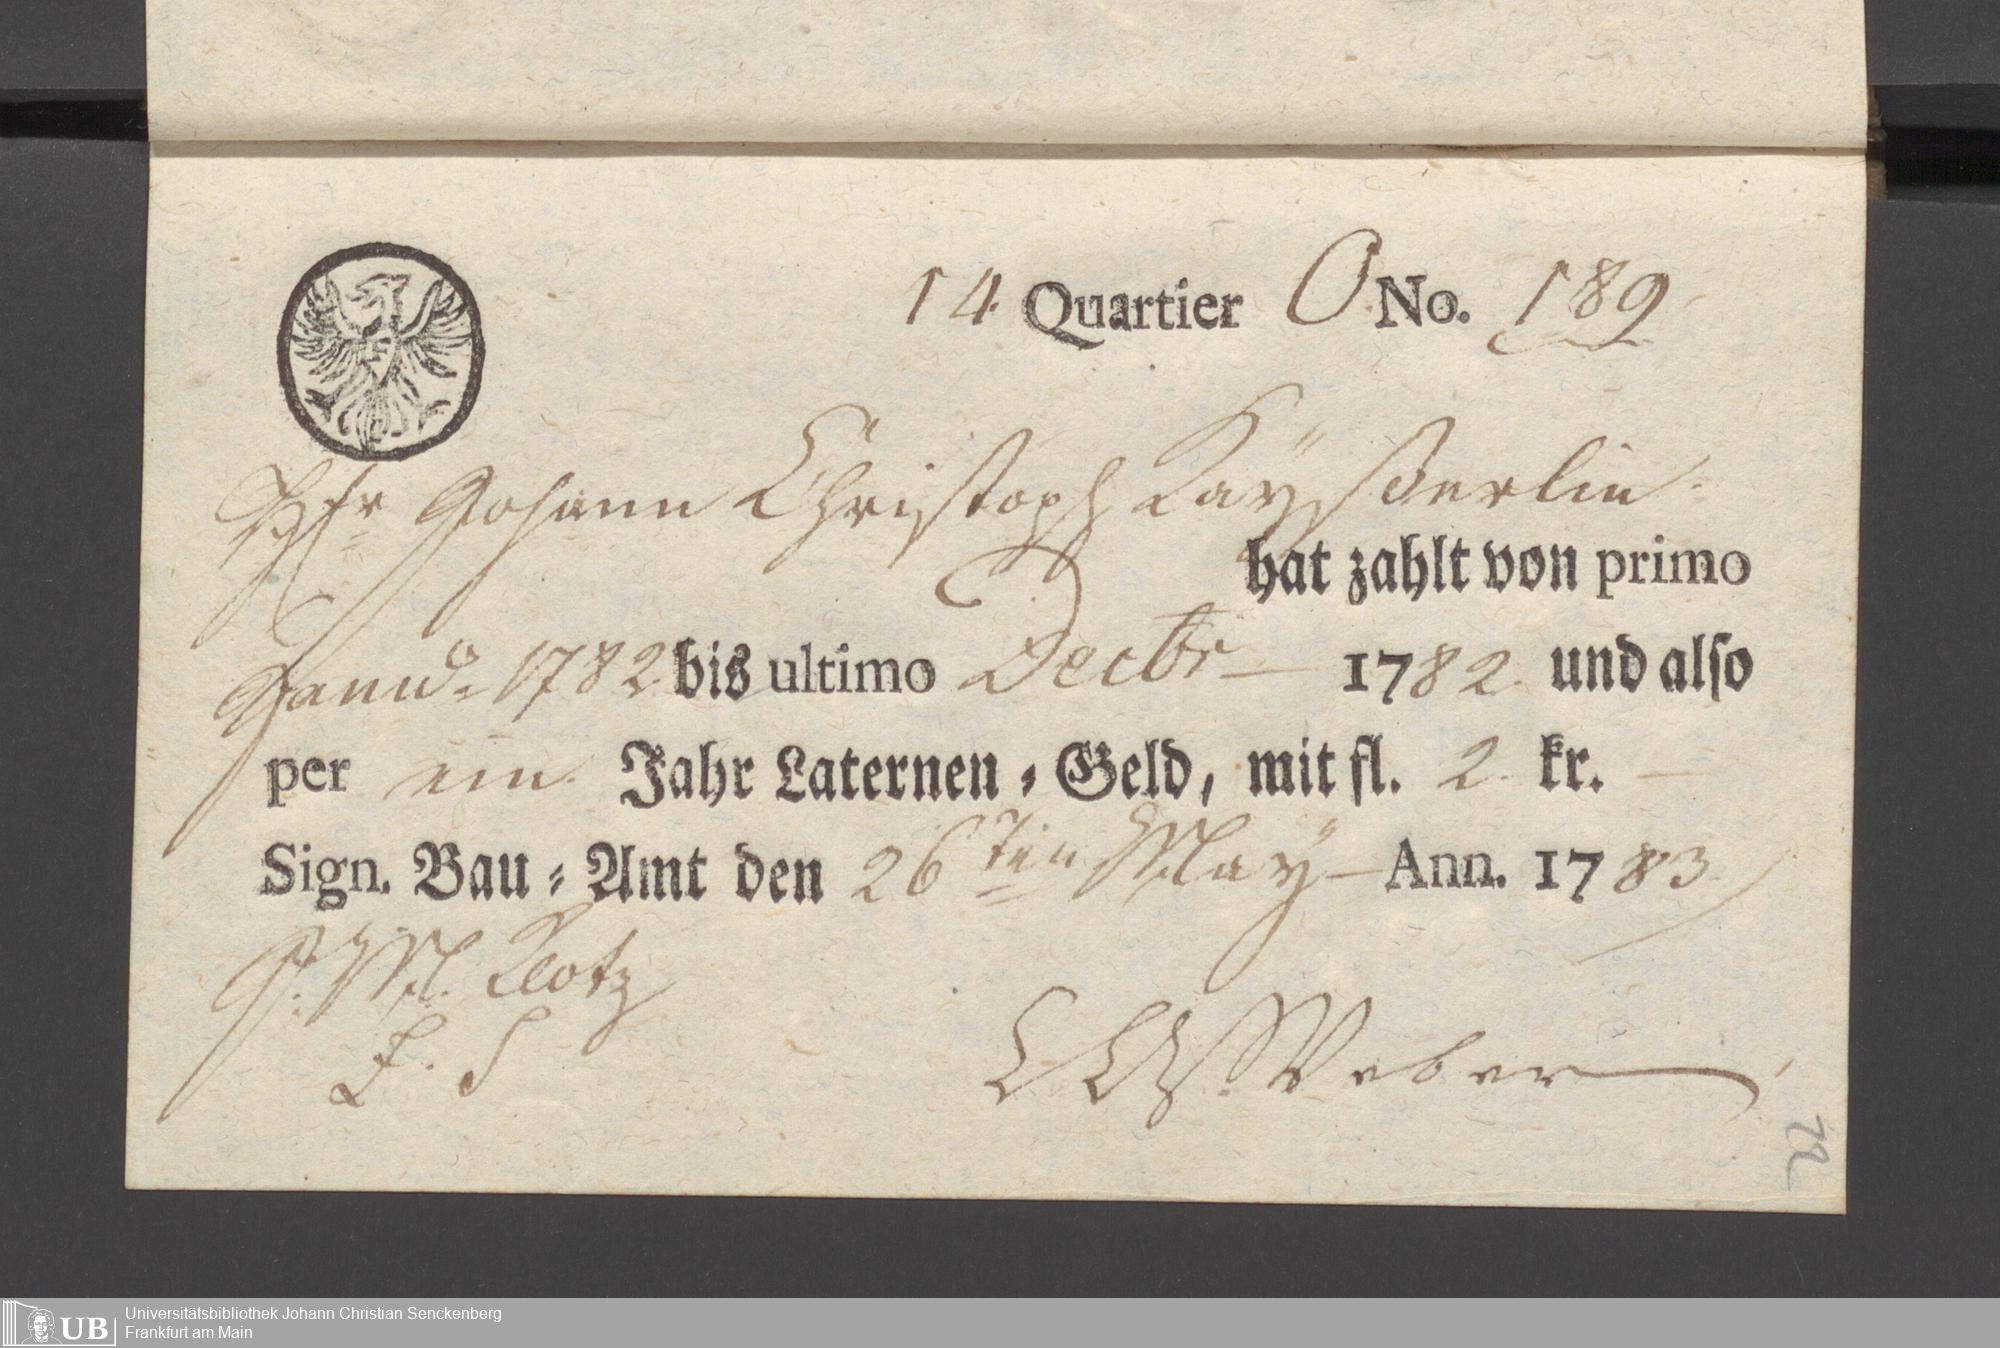 14. Quartier O No. 189
Johann Christoph Kayßerlin.
hat zahlt von primo
Janu. 1782. bis ultimo Decbr 1782. und also
per ein Jahr Laternen-Geld, mit fl. 2. kr. —
Sign. Bau-Amt den 26ten Maÿ Ann. 1783
J. M. Klotz
Weber
72
F
UB
Universitätsbibliothek Johann Christian Senckenberg
Frankfurt am Main